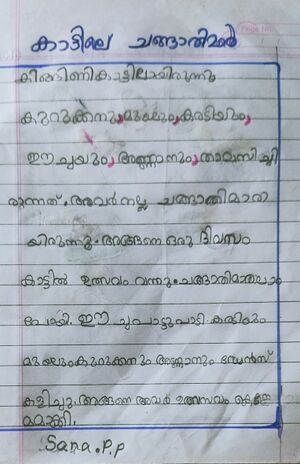 കാട്ടിലെ ചങ്ങാതിമാർ
കിങ്ങിണികാട്ടിലായിരുന്നു
കുറുക്കനും,മുയലും,കരടിയും,
ഈച്ചയും, അണ്ണാനും, താമസിച്ചി
രുന്നത്. അവർ നല്ല ചങ്ങാതിമാരാ
യിരുന്നു. അങ്ങനെ ഒരു ദിവസം
കാട്ടിൽ ഉത്സവം വന്നു. ചങ്ങാതിമാരെല്ലാം
പോയി. ഈച്ച പാട്ടുപാടി. കരടിയും
മുയലുംകുറുക്കനും അണ്ണാനും ഡേൻസ്
കളിച്ചു. അങ്ങനെ അവർ ഉത്സവം
മാക്കി.
Sana.P.P